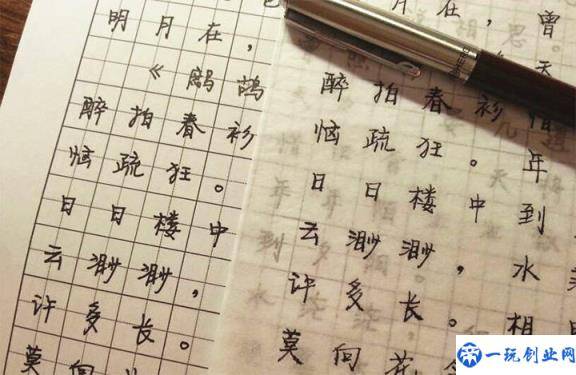 明月在,
《鹧鸪
醉拍春衫
恼疏狂。
日日楼中
云渺渺,
许多长。
莫向
月在,曾
天
醉拍春衫惜
恼疏狂。年
日日楼中到
云渺渺,水
许多长。相
莫向花
一玩创业网